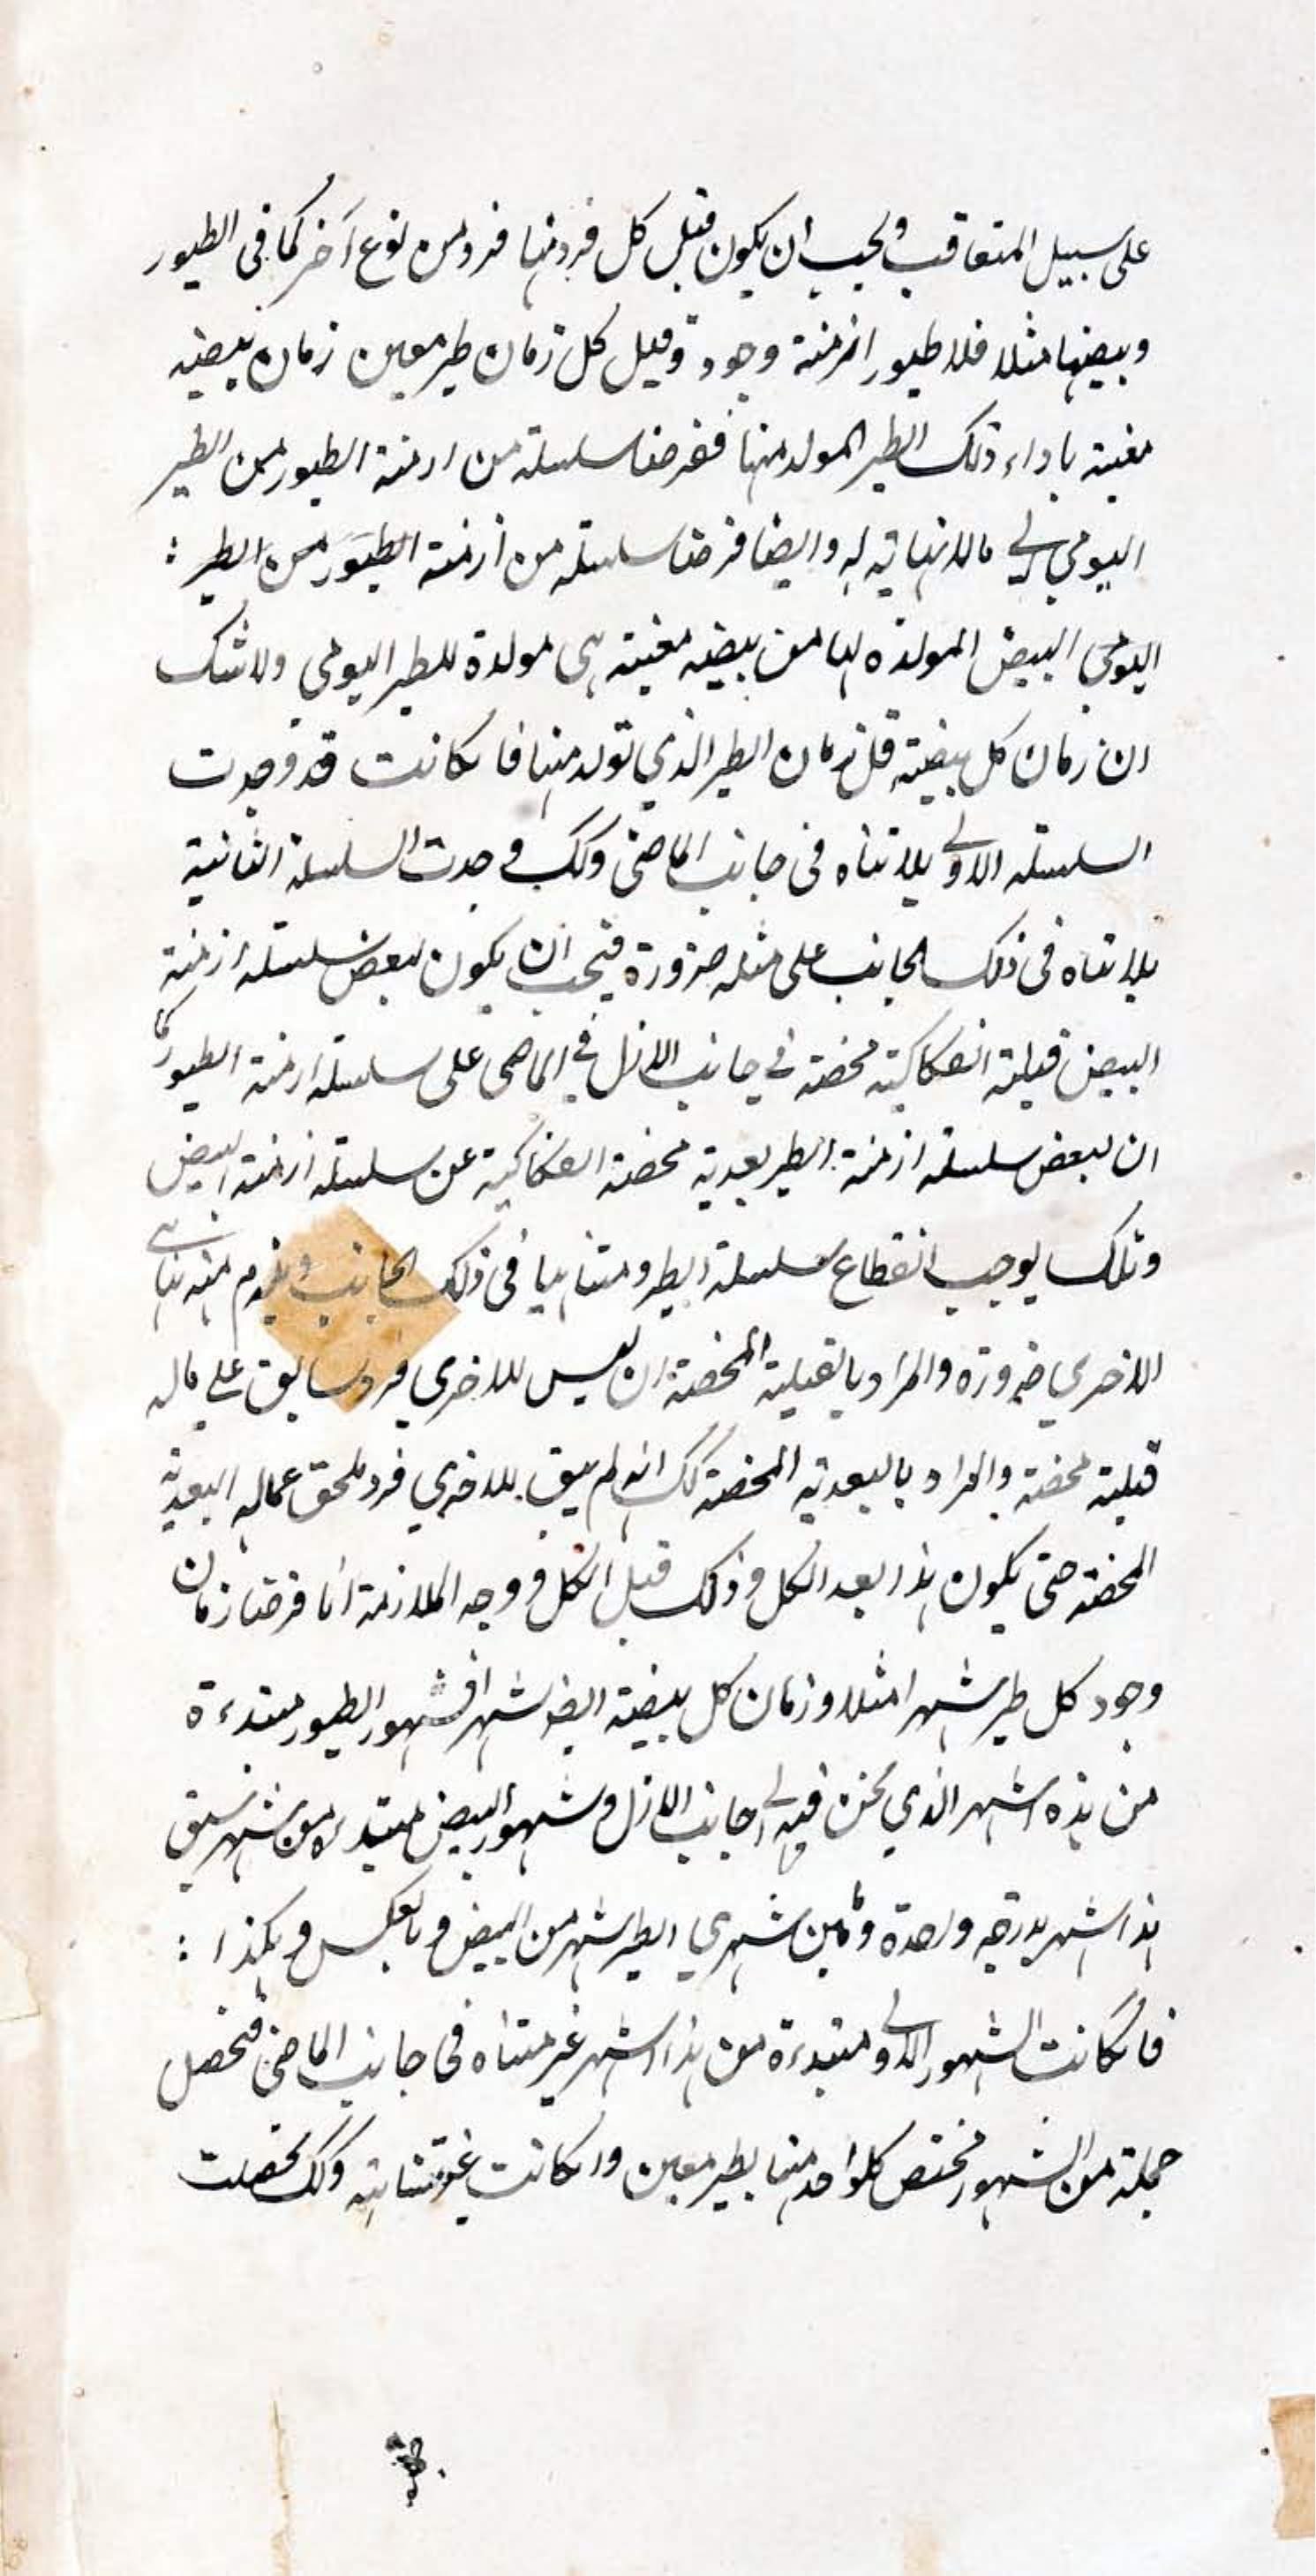 على سبيل المتعاقب ويجب ان يكون قبل كل فرد منها فرد من نوع آخر كما فى الطيور
وبيضها مثلا فللطيور ازمنة وجود وقبل كل زمان طير معين زمان بيضة
معينة باداء ذلك الطير المولد منها ففرضنا سلسلة من ازمنة الطيور من الطير
اليومي الى مالانهاية له وايضا فرضنا سلسلة من ازمنة الطيور من الطير :
اليومي البيض المولدة لها من بيضة معينة هى مولدة للطير اليومى ولاشك
ان زمان كل بيضة قبل زمان الطير الذي تولد منها فا كانت قد وجدت
السلسلة الاولى بلا تناه فى جانب الماضى وكك وجدت السلسلة الثانية
بلا تناه فى ذلك الجانب على مثله ضرورة فيجب ان يكون لبعض سلسلة ازمنة
البيض قبلية انفكاكية محضة في جانب الازل في الماضى على سلسلة ازمنة الطيور كما
ان لبعض سلسلة ازمنة الطير بعدية محضة انفكاكية عن سلسلة ازمنة البيض
وتلك يوجب انقطاع سلسلة الطير ومتناهيا فى ذلك الجانب ويلزم منه تناهى
الاخرى ضرورة والمراد بالقبلية المحضة ان ليس للاخرى فرد سابق على ماله
قبلية محضة والمراد بالبعدية المحضة كك انه لم يبق للاخرى فرد ملحق عماله البعدية
المحضة حتى يكون هذا بعد الكل وذلك قبل الكل ووجه الملازمة انا فرضنا زمان
وجود كل طير شهرا مثلا وزمان كل بيضة ايض شهرا فشهور الطيور مبتدءة
من هذه الشهر الذي نحن فيه الى جانب الازل وشهور البيض مبتدءة من شهر سبق
هذا الشهر بدرجة واحدة ومابين شهري الطير شهر من البيض وبالعكس وهكذا :
فان كانت الشهور الاولى مبتدءة من هذا الشهر غير متناه فى جانب الماضى فتحصل
جملة من الشهور مختص كلواحد منها بطير معين وان كانت غير متناهية وكك تحصلت